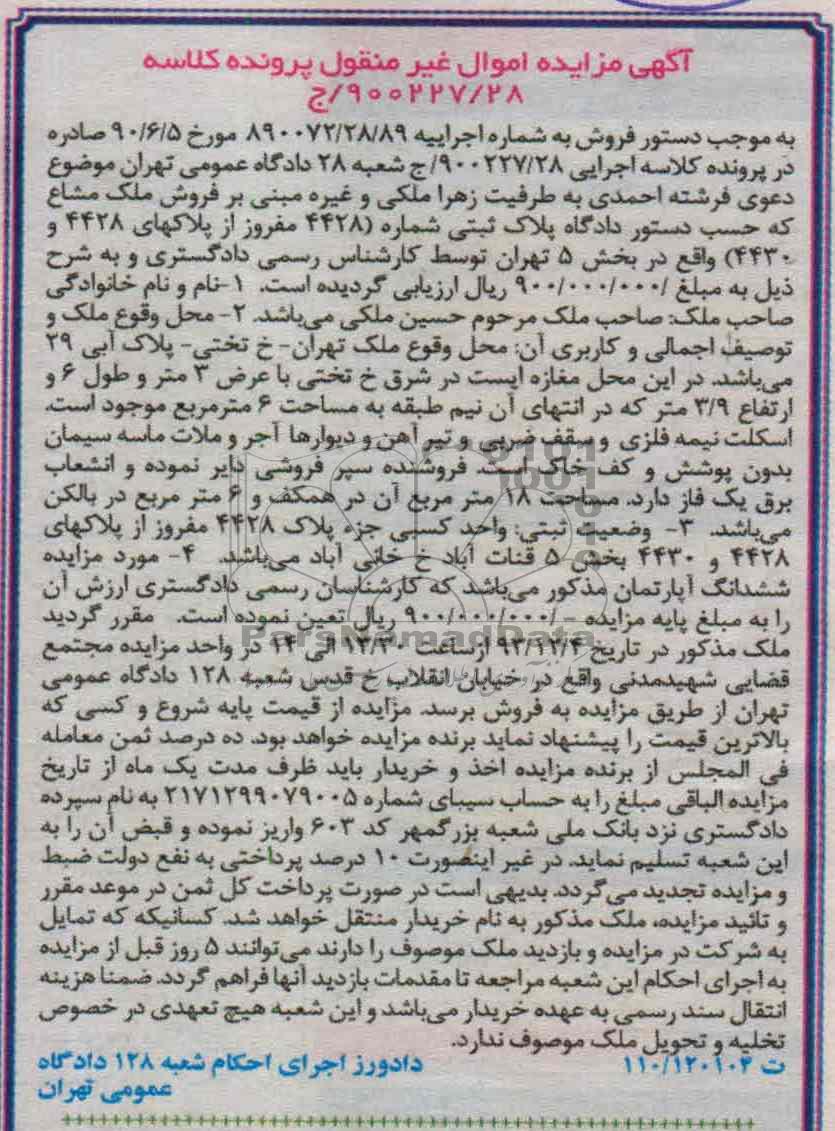 آگهی مزایده اموال غیر منقول پرونده کلاسه
۹۰۰۲۲۷/۲۸/ج
به موجب دستور فروش به شماره اجراییه ۸۹۰۰۷۲/۲۸/۸۹ مورخ ۹۰/۶/۵ صادره
در پرونده کلاسه اجرایی ۹۰۰۲۲۷/۲۸/ج شعبه ۲۸ دادگاه عمومی تهران موضوع
دعوی فرشته احمدی به طرفیت زهرا ملکی و غیره مبنی بر فروش ملک مشاع
که حسب دستور دادگاه پلاک ثبتی شماره (۴۴۲۸ مفروز از پلاکهای ۴۴۲۸ و
۴۴۳۰) واقع در بخش ۵ تهران توسط کارشناس رسمی دادگستری و به شرح
ذیل به مبلغ /۹۰۰/۰۰۰/۰۰۰ ریال ارزیابی گردیده است. ۱-نام و نام خانوادگی
صاحب ملک: صاحب ملک مرحوم حسین ملکی می‌باشد. ۲- محل وقوع ملک و
توصیف اجمالی و کاربری آن: محل وقوع ملک تهران- خ تختی- پلاک آبی ۲۹
می‌باشد. در این محل مغازه ایست در شرق خ تختی با عرض ۳ متر و طول ۶ و
ارتفاع ۳/۹ متر که در انتهای آن نیم طبقه به مساحت ۶ مترمربع موجود است.
اسکلت نیمه فلزی و سقف ضربی و تیر آهن و دیوارها آجر و ملات ماسه سیمان
بدون پوشش و کف خاک است. فروشنده سپر فروشی دایر نموده و انشعاب
برق یک فاز دارد. مساحت ۱۸ متر مربع آن در همکف و ۶ متر مربع در بالکن
می‌باشد. ۳- وضعیت ثبتی: واحد کسبی جزء پلاک ۴۴۲۸ مفروز از پلاکهای
۴۴۲۸ و ۴۴۳۰ بخش ۵ قنات آباد خ خانی آباد می‌باشد. ۴- مورد مزایده
ششدانگ آپارتمان مذکور می‌باشد که کارشناسان رسمی دادگستری ارزش آن
را به مبلغ پایه مزایده -/۹۰۰/۰۰۰/۰۰۰ ریال تعین نموده است. مقرر گردید
ملک مذکور در تاریخ ۹۳/۱۲/۴ ازساعت ۱۳/۳۰ الی ۱۴ در واحد مزایده مجتمع
قضایی شهیدمدنی واقع در خیابان انقلاب خ قدس شعبه ۱۲۸ دادگاه عمومی
تهران از طریق مزایده به فروش برسد. مزایده از قیمت پایه شروع و کسی که
بالاترین قیمت را پیشنهاد نماید برنده مزایده خواهد بود. ده درصد ثمن معامله
فی المجلس از برنده مزایده اخذ و خریدار باید ظرف مدت یک ماه از تاریخ
مزایده الباقی مبلغ را به حساب سیبای شماره ۲۱۷۱۲۹۹۰۷۹۰۰۵ به نام سپرده
دادگستری نزد بانک ملی شعبه بزرگمهر کد ۶۰۳ واریز نموده و قبض آن را به
این شعبه تسلیم نماید. در غیر اینصورت ۱۰ درصد پرداختی به نفع دولت ضبط
و مزایده تجدید می‌گردد. بدیهی است در صورت پرداخت کل ثمن در موعد مقرر
و تائید مزایده، ملک مذکور به نام خریدار منتقل خواهد شد. کسانیکه که تمایل
به شرکت در مزایده و بازدید ملک موصوف را دارند می‌توانند ۵ روز قبل از مزایده
به اجرای احکام این شعبه مراجعه تا مقدمات بازدید آنها فراهم گردد. ضمنا هزینه
انتقال سند رسمی به عهده خریدار می‌باشد و این شعبه هیچ تعهدی در خصوص
تخلیه و تحویل ملک موصوف ندارد.
ت ۱۱۰/۱۲۰۱۰۴ دادورز اجرای احکام شعبه ۱۲۸ دادگاه
عمومی تهران
ParsNamadData